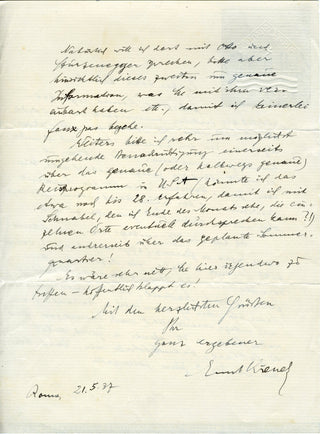 Natürlich will ich dort mit Otto und
sprechen, bitte aber
hinsichtlich dieses zweiten um genaue
Information, was Sie mit ihm ver-
einbart haben etc., damit ich keinerlei
faux pas begehe.
Weiters bitte ich sehr um möglichst
umgehende Benachrichtigung einerseits
über das genaue (oder halbwegs genaue)
Reiseprogramm in USA (könnte ich das
etwa noch bis 28. erfahren, damit ich mit
Schnabel, den ich Ende des Monats sehe, die ein-
zelnen Orte eventuell durchsprechen kann?!)
und andrerseits über das geplante Sommer-
quartier!
Es wäre sehr nett, Sie hier irgendwo zu
treffen – hoffentlich klappt es!
Mit den herzlichsten Grüßen
Ihr
ganz ergebener
Ernst Krenek
Roma, 21.5.37